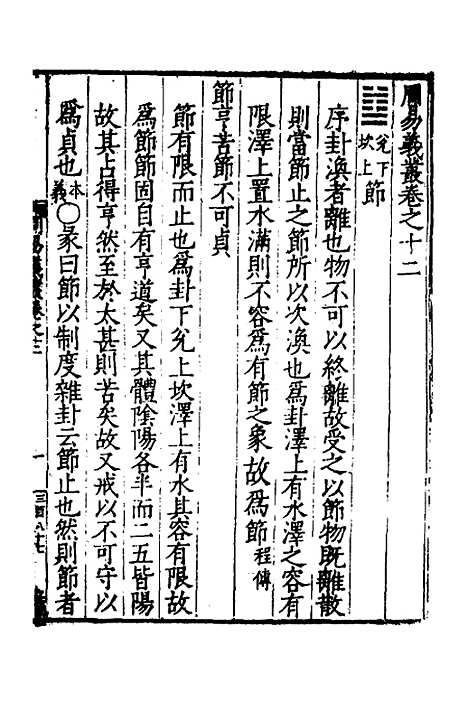 周易義叢卷之十二
兌下
坎上
節
序卦渙者離也物不可以終離故受之以節物既離散
則當節止之節所以次渙也為卦澤上有水澤之容有
限澤上置水滿則不容為有節之象故為節程傳
節亨苦節不可貞
節有限而止也為卦下兌上坎澤上有水其容有限故
為節節固自有亨道矣又其體陰陽各半而二五皆陽
故其占得亨然至於太甚則苦矣故又戒以不可守以
為貞也本義〇彖曰節以制度雜封云節止也然則節者